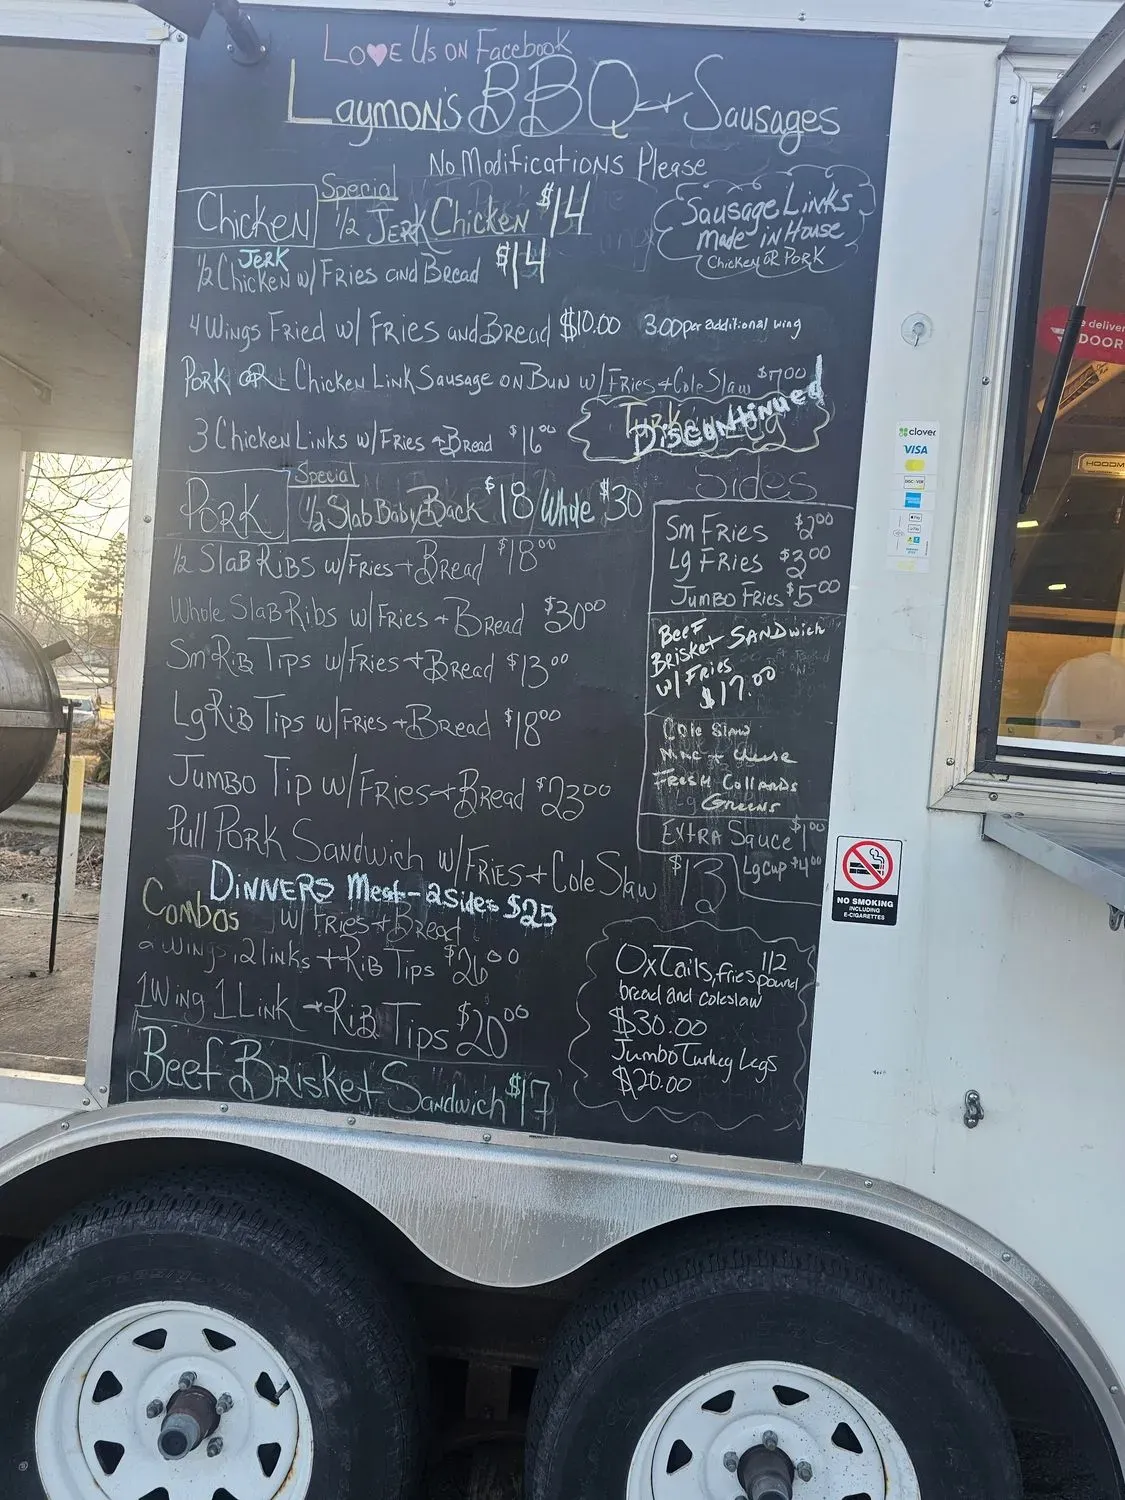 Love Us on Facebook
Laymon's BBQ + Sausages
No Modifications Please
Chicken
Special
1/2 Jerk Chicken $14
Sausage Links
made in House
Chicken or Pork
1/2 Jerk Chicken w/ Fries and Bread $14
4 Wings Fried w/ Fries and Bread $10.00 3.00 per additional wing
Pork or Chicken Link Sausage on Bun w/ Fries + Cole Slaw $7.00
Discontinued
3 Chicken Links w/ Fries + Bread $16.00
Pork
Special
1/2 Slab Baby Back $18/Whole $30
1/2 Slab Ribs w/ Fries + Bread $18.00
Whole Slab Ribs w/ Fries + Bread $30.00
Sm Rib Tips w/ Fries + Bread $13.00
Lg Rib Tips w/ Fries + Bread $18.00
Jumbo Tip w/ Fries + Bread $23.00
Pull Pork Sandwich w/ Fries + Cole Slaw $13
Dinners Meat - 2 Sides $25
Combos w/ Fries + Bread
2 Wings, 2 links + Rib Tips $26.00
1 Wing 1 Link + Rib Tips $20.00
Beef Brisket Sandwich $17
Sides
Sm Fries $2.00
Lg Fries $3.00
Jumbo Fries $5.00
Beef
Brisket Sandwich
w/ Fries
$17.00
Cole Slaw
Mac + Cheese
Fresh Collards
Greens
Extra Sauce $1.00
Lg Cup $4.00
OxTails, fries 1/2 pound
bread and coleslaw
$30.00
Jumbo Turkey Legs
$20.00
clover
VISA
DISCOVER
NO SMOKING
INCLUDING
E-CIGARETTES
deliver
DOOR